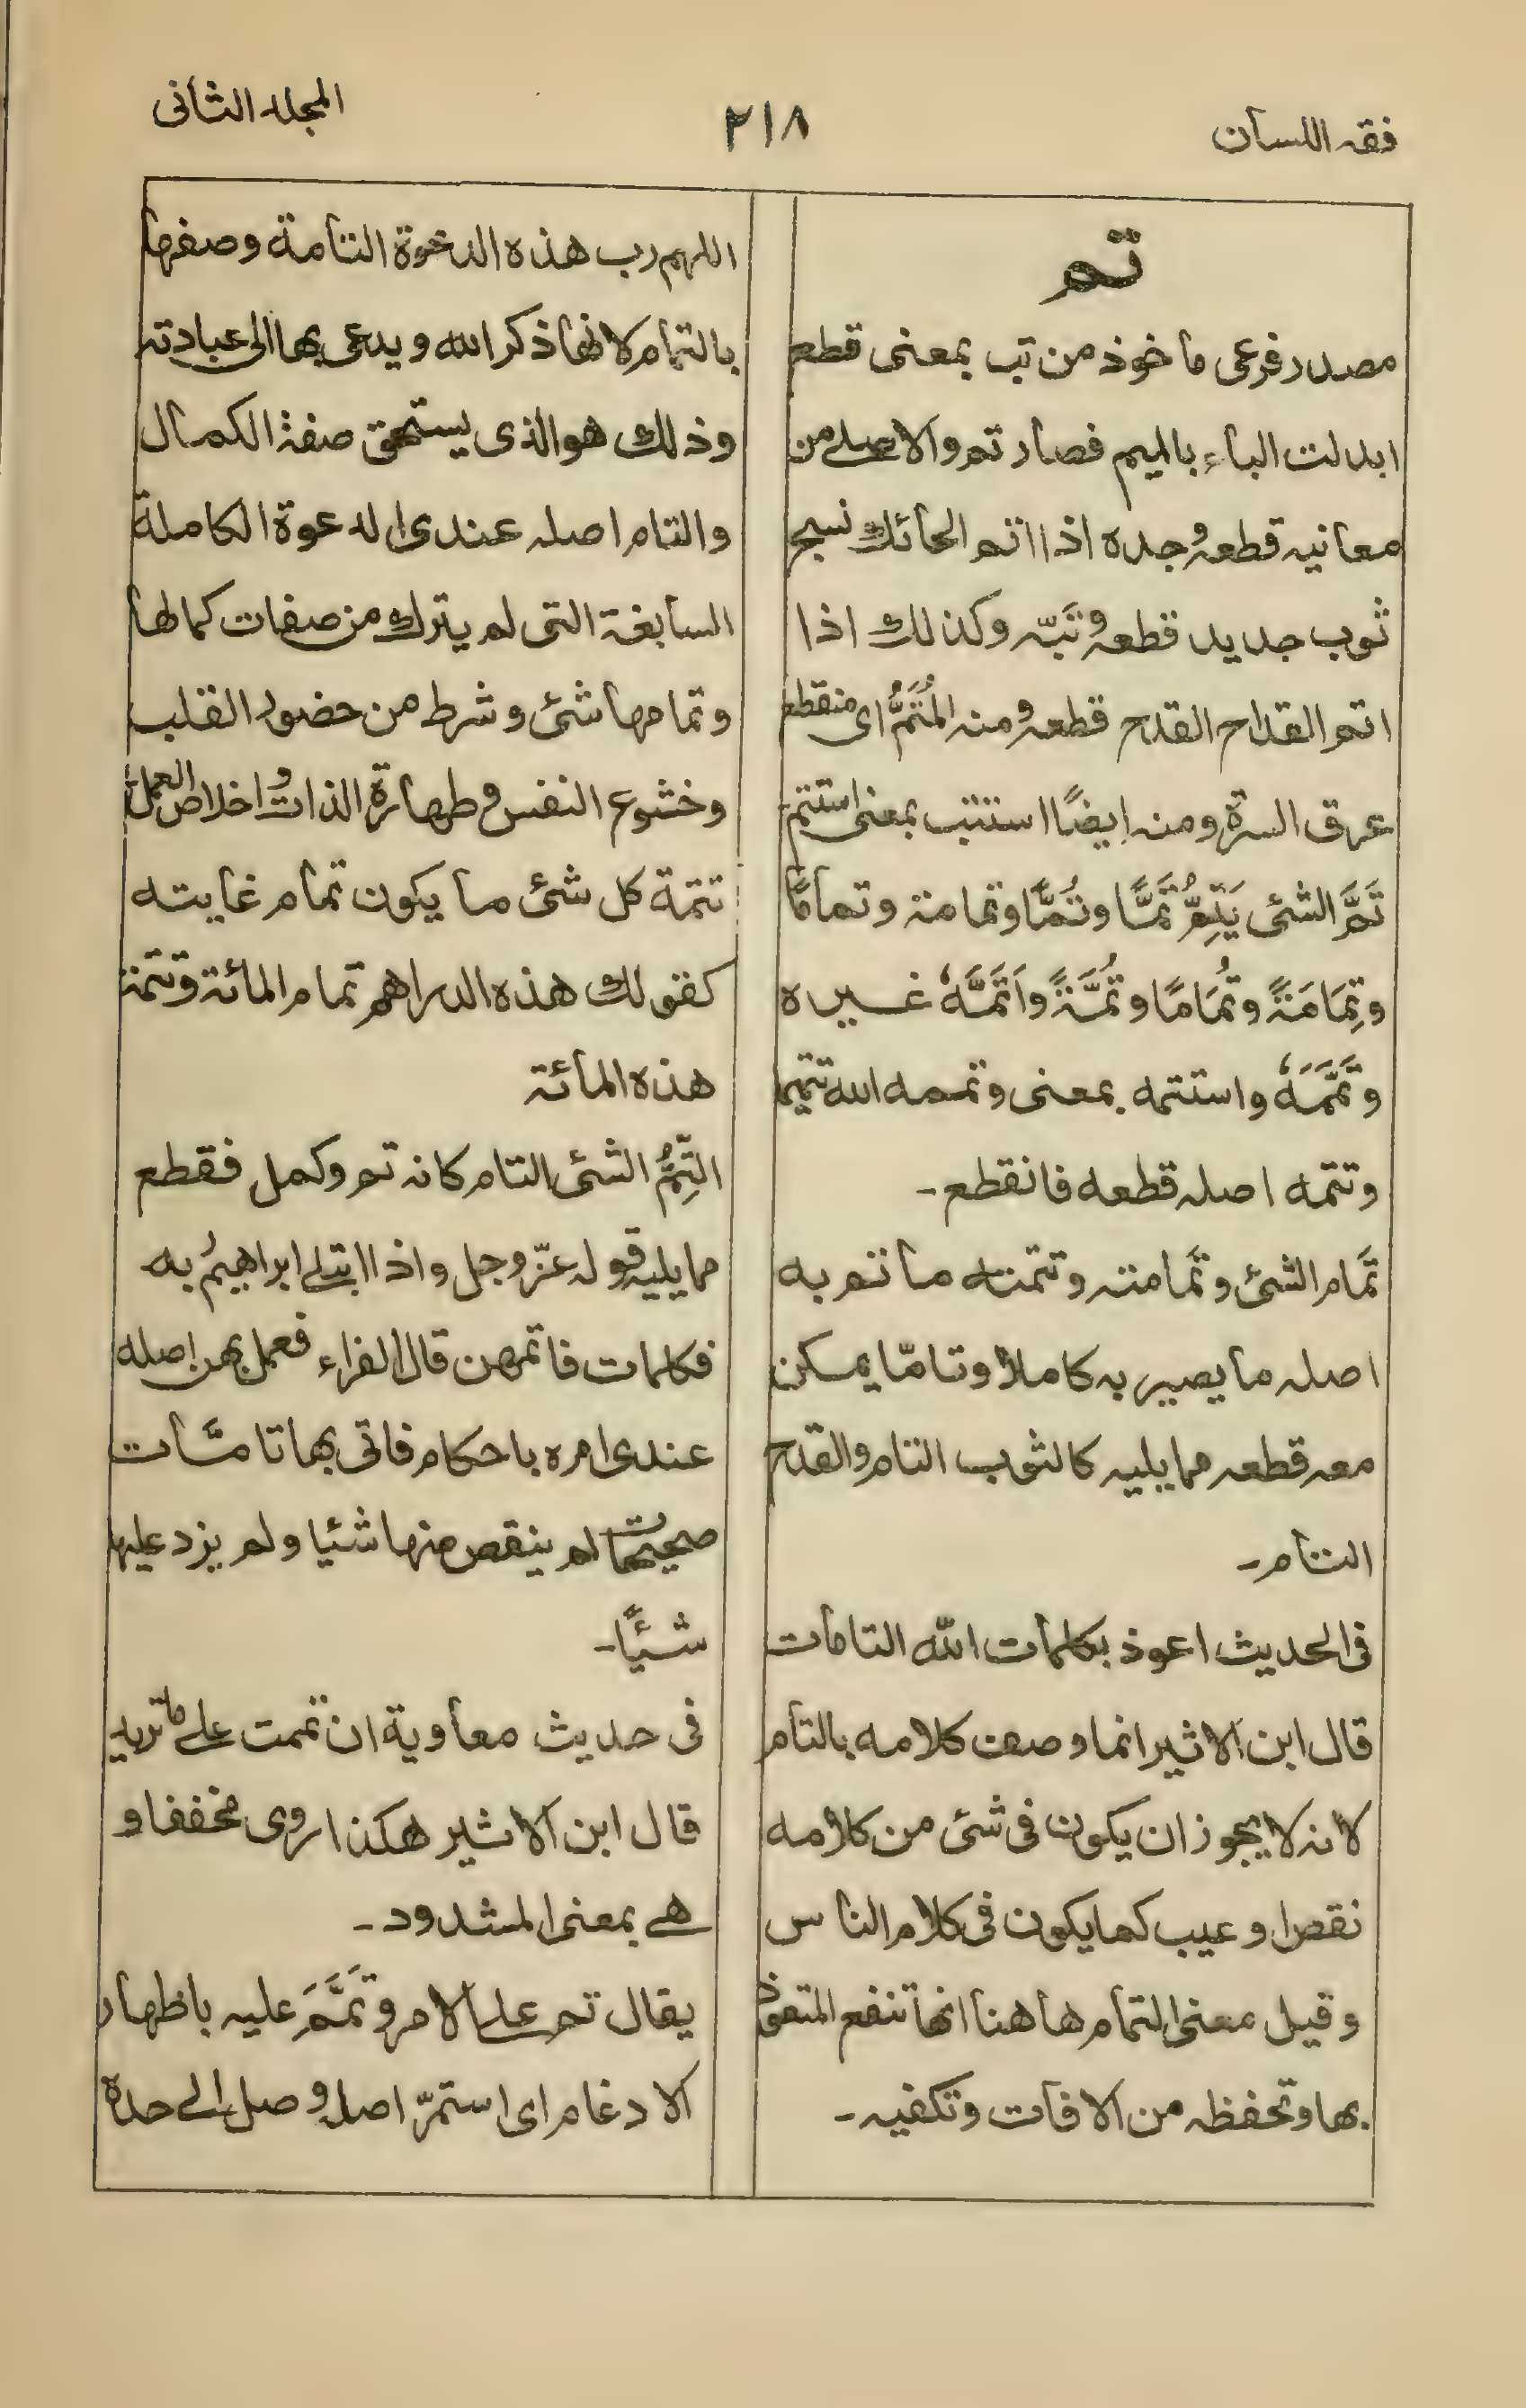 فقه اللسان
٢١٨
المجلد الثانى
تم
مصدر فرعى ماخوذ من تب بمعنى قطع
ابدلت الباء بالميم فصار تم والاصلے من
معانيه قطعه وجده اذا اتم الحائك نسج
ثوب جديد قطعه وتَبّه وكذلك اذا
اتم القداح القدح قطعه ومنه المُتَمُّ اى منقطع
عرق السرة ومنه ايضًا استتب بمعنى استتم
تَمَّ الشئى يَتِمُّ تَمًّا وتُمًّا وتمامة وتمامًا
وتِمَامَةً وتُمَامًا وتُمَّةً واَتَمَّهٗ غيره
وتَمَّمَهٗ واستتمه بمعنى وتممه الله تتميما
وتتمه اصله قطعه فانقطع -
تَمام الشئى وتَمامته وتتمته ما تم به
اصله ما يصير به كاملا وتامّا يمكن
معه قطعه مما يليه كالثوب التام والقدح
التام -
فى الحديث اعوذ بكلمات الله التامات
قال ابن الاثير انما وصف كلامه بالتام
لانه لا يجوز ان يكون فى شئى من كلامه
نقص او عيب كما يكون فى كلام الناس
وقيل معنى التمام هاهنا انها تنفع المتعوذ
بها وتحفظه من الافات وتكفيه -
اللهم رب هذه الدعوة التامة وصفها
بالتمام لانها ذكر الله ويدعى بها الى عبادته
وذلك هو الذى يستحق صفة الكمال
والتام اصله عندى الدعوة الكاملة
السابغة التى لم يترك من صفات كمالها
وتمامها شئى وشرط من حضور القلب
وخشوع النفس وطهارة الذات واخلاص العمل
تتمة كل شئى ما يكون تمام غايته
كقولك هذه الدراهم تمام المائة وتتمة
هذه المائة
التِّمُّ الشئى التام كانه تم وكمل فقطع
مما يليه قوله عزّ وجل واذا ابتلے ابراهيمُ به
فكلمات فاتمهن قال الفراء فعمل بهن اصله
عندى امره باحكام فاتى بها تامَّات
لم ينقص منها شئيا ولم يزد عليها
شئيًا -
فى حديث معاوية ان تممت علے ما تريد
قال ابن الاثير هكذا روى مخففا و
هے بمعنى المشدود -
يقال تم علے الامر وتَمَّمَ عليه باظهار
الادغام اى استمرّ اصله وصل الے حدة